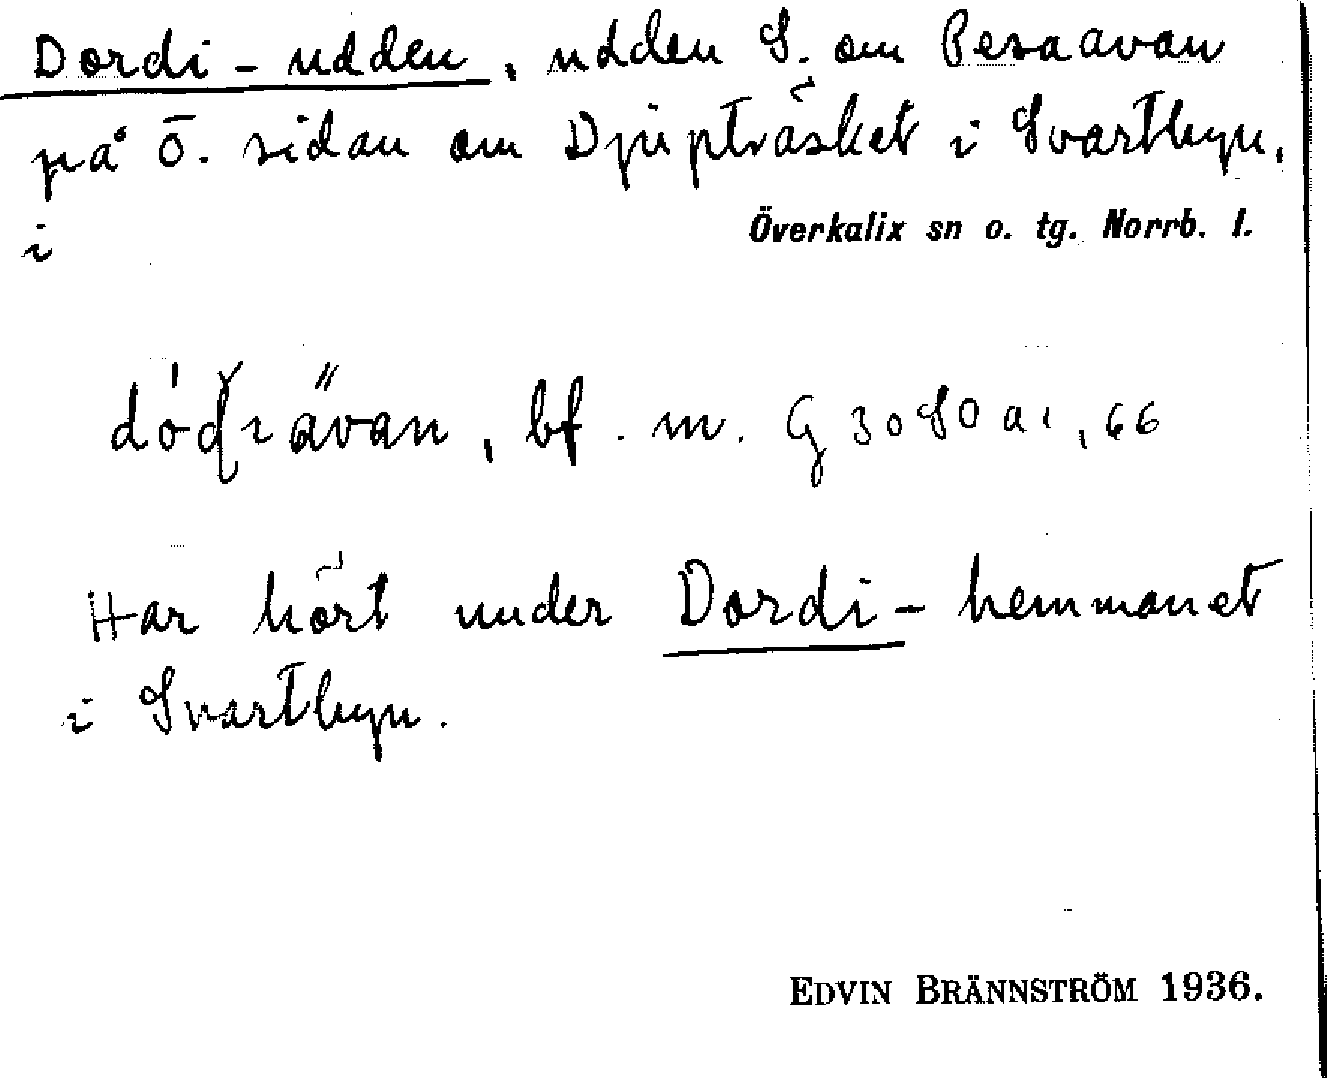 Dordi-udden, udden S. om Pesaavan
på Ö. sidan om Djupträsket i Svartbyn,
i Överkalix sn o. tg. Norrb. l.
bf. m. G 3080 a1, 66
Har hört under Dordi-hemmanet
i Svartbyn.
EDVIN BRÄNNSTRÖM 1936.